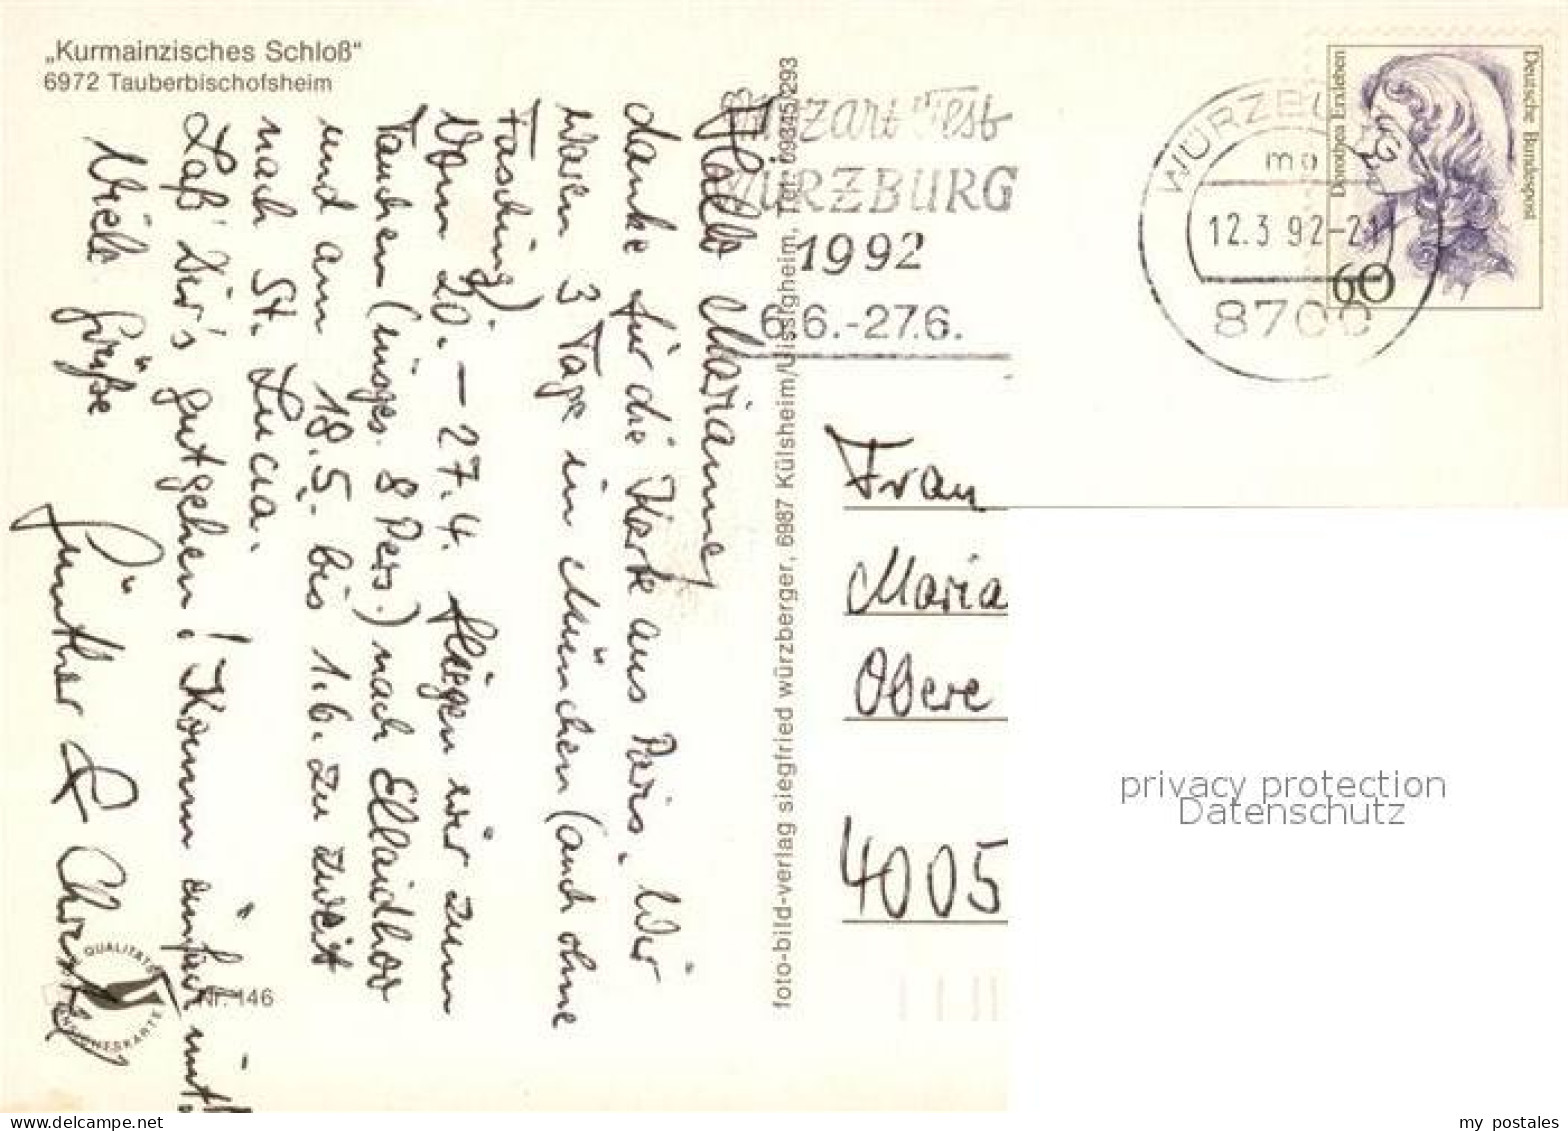 „Kurmainzisches Schloß“
6972 Tauberbischofsheim
Hallo Marianne,
danke für die Karte aus Paris. Wir
waren 3 Tage in München (auch ohne
Fasching)
Vom 20. – 27.4. fliegen wir zum
Tauchen (insges. 8 Pers.) nach Ellaidhoo
und am 18.5. bis 1.6. zu zweit
nach St. Lucia.
Laß' Dir's gutgehen! Komm einfach mit!
Viele Grüße
Günther & Christel
QUALITÄTS
ANSICHTSKARTE
Nr. 146
foto-bild-verlag siegfried würzberger, 6987 Külsheim/Uissigheim, Tel. 09345/293
Mozart Fest
WÜRZBURG
1992
6.6.-27.6.
WÜRZBU
mo
12.3.92-21
8700
Deutsche Bundespost
Dorothea Erxleben
60
Frau
Maria
Obere
4005
privacy protection
Datenschutz
www.delcampe.net
my_postales